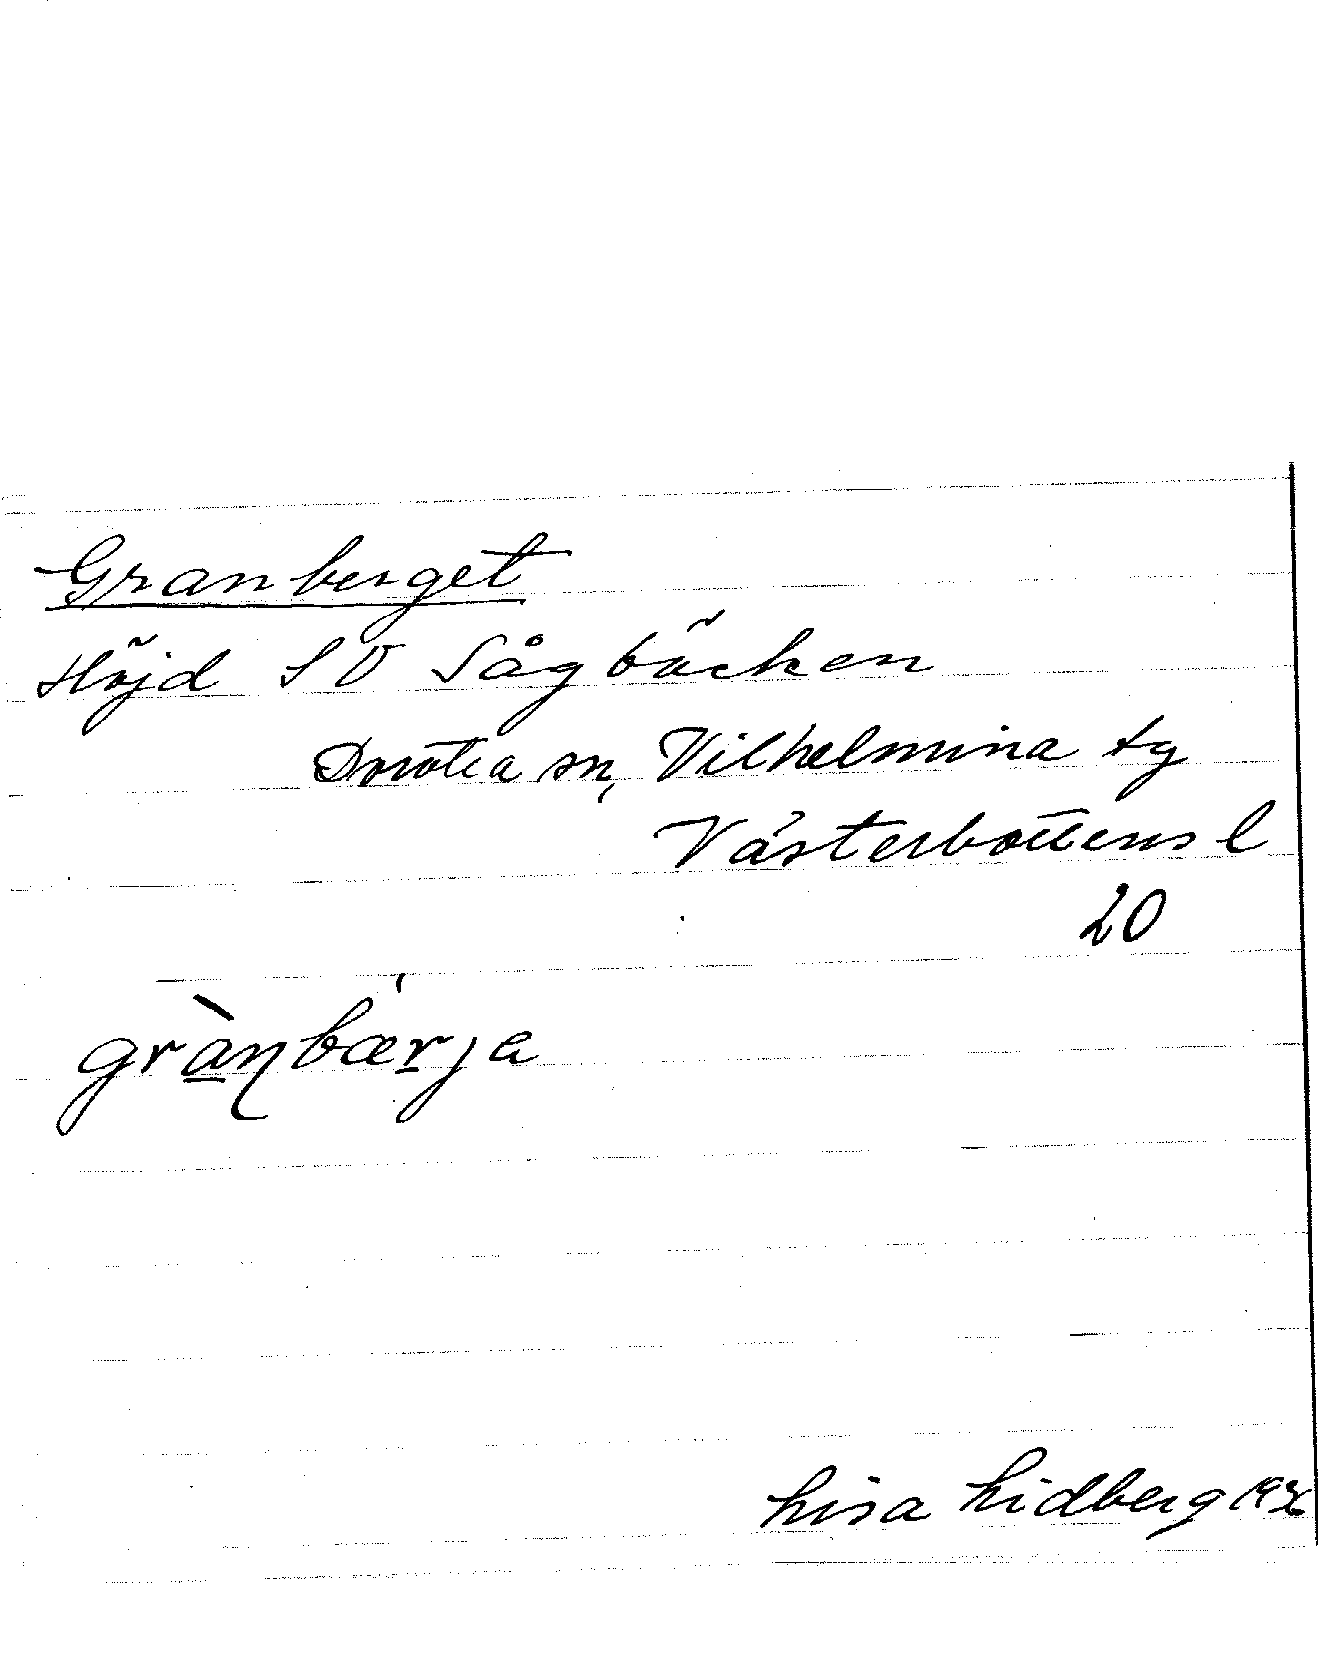 Granberget
Höjd SV Sågbäcken
Dorotea sn, Vilhelmina tg
Västerbottens l
20
grànbærja
Lisa Lidberg 1936